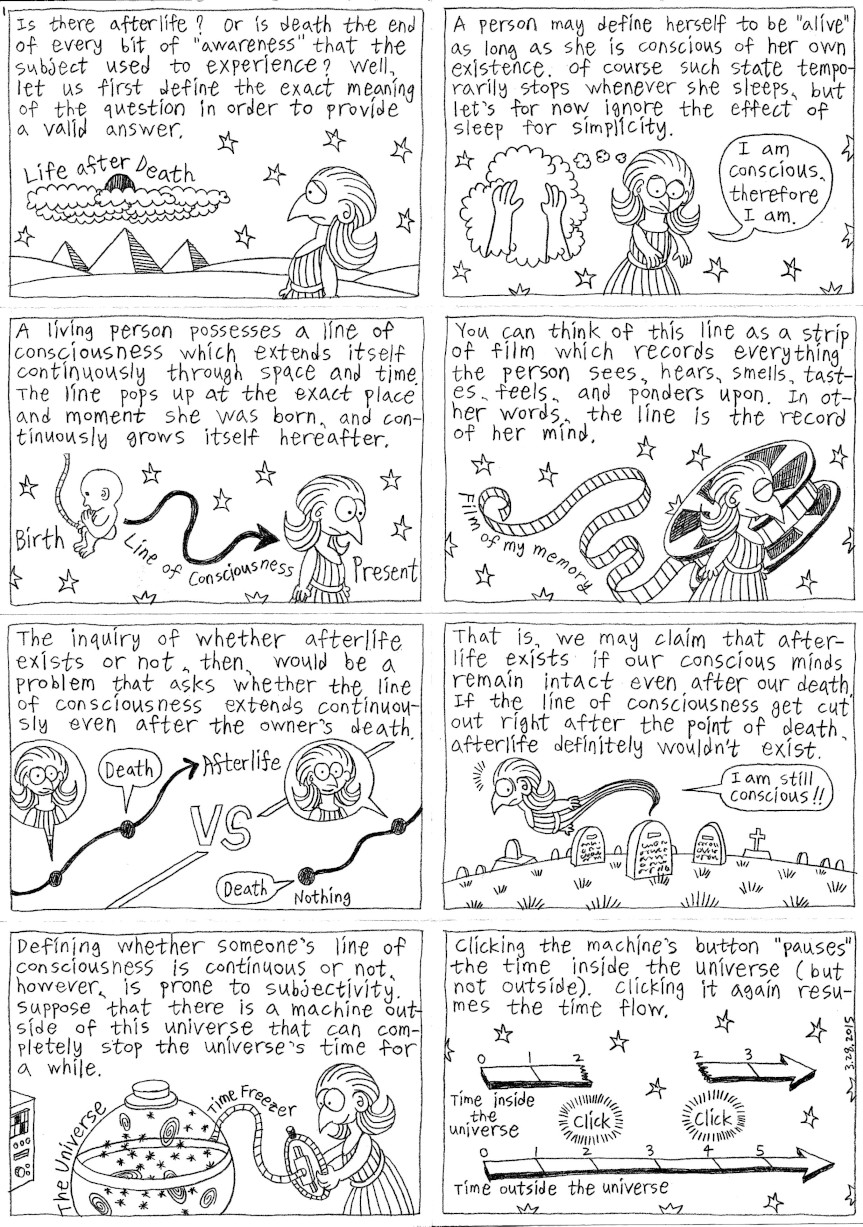 1
Is there afterlife? Or is death the end
of every bit of "awareness" that the
subject used to experience? Well,
let us first define the exact meaning
of the question in order to provide
a valid answer.
Life after Death
A person may define herself to be "alive"
as long as she is conscious of her own
existence. Of course such state tempo-
rarily stops whenever she sleeps, but
let's for now ignore the effect of
sleep for simplicity.
I am
conscious,
therefore
I am.
A living person possesses a line of
consciousness which extends itself
continuously through space and time.
The line pops up at the exact place
and moment she was born, and con-
tinuously grows itself hereafter.
Birth
Line of Consciousness
Present
You can think of this line as a strip
of film which records everything
the person sees, hears, smells, tast-
es, feels, and ponders upon. In ot-
her words, the line is the record
of her mind.
Film of my memory
The inquiry of whether afterlife
exists or not, then, would be a
problem that asks whether the line
of consciousness extends continuou-
sly even after the owner's death.
Death
Afterlife
VS
Death
Nothing
That is, we may claim that after-
life exists if our conscious minds
remain intact even after our death.
If the line of consciousness get cut
out right after the point of death,
afterlife definitely wouldn't exist.
I am still
conscious!!
Defining whether someone's line of
consciousness is continuous or not,
however, is prone to subjectivity.
Suppose that there is a machine out-
side of this universe that can com-
pletely stop the universe's time for
a while.
The Universe
Time Freezer
Clicking the machine's button "pauses"
the time inside the universe (but
not outside). Clicking it again resu-
mes the time flow.
0 1 2
2 3
Time inside
the
universe
Click
Click
0 1 2 3 4 5
Time outside the universe
3.28.2015